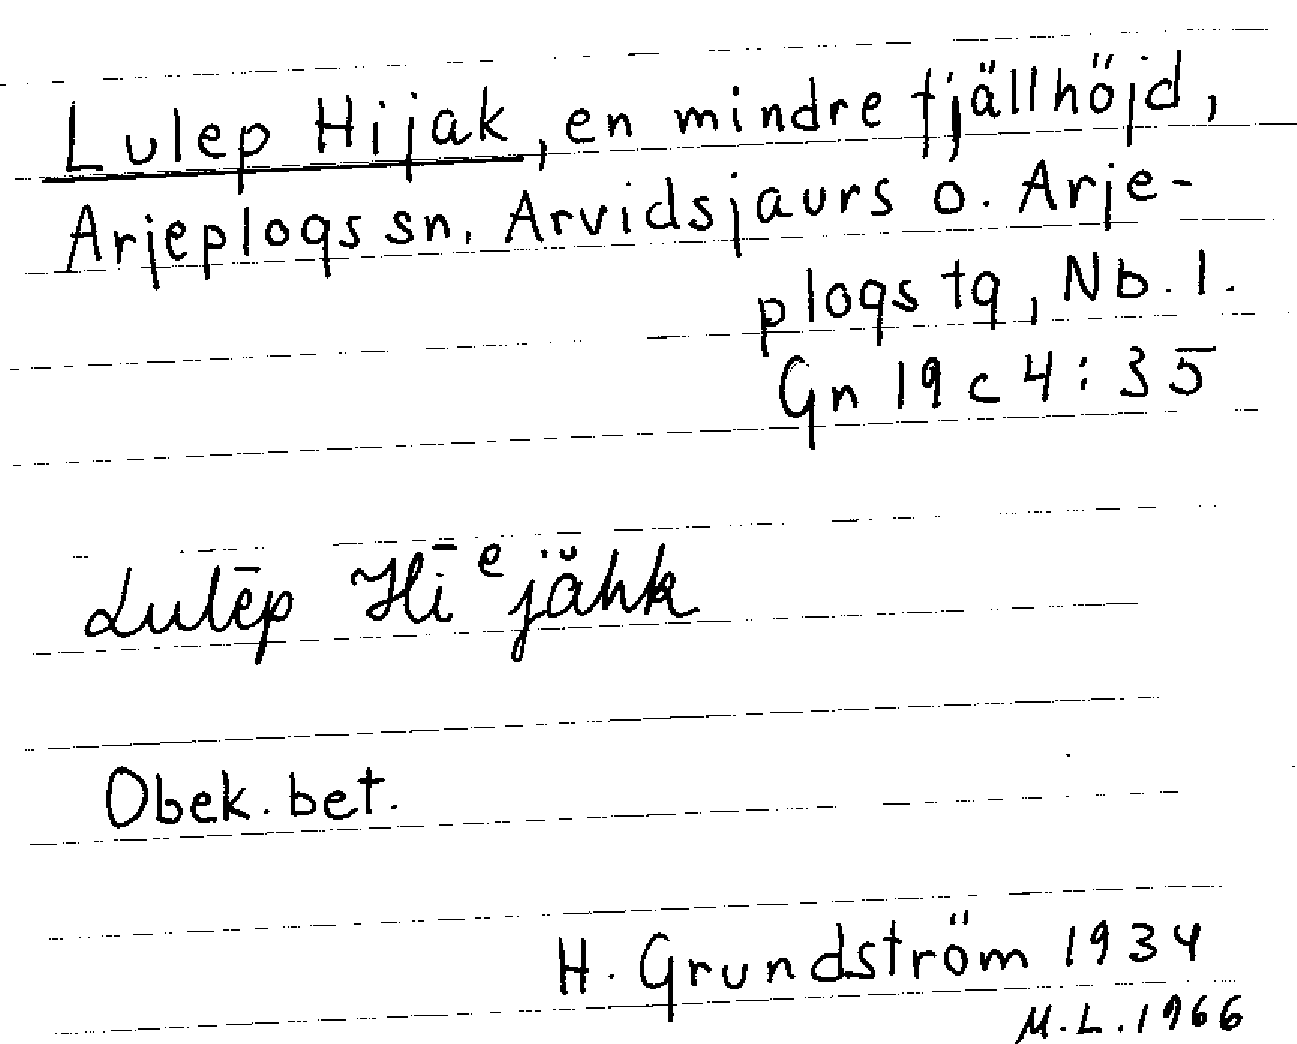 Lulep Hijak, en mindre fjällhöjd,
Arjeplogs sn, Arvidsjaurs o. Arje-
plogs tg, Nb. l.
Gn 19 c 4:35
Lulēp Hīᵉjăhk
Obek. bet.
H. Grundström 1934
M.L. 1966